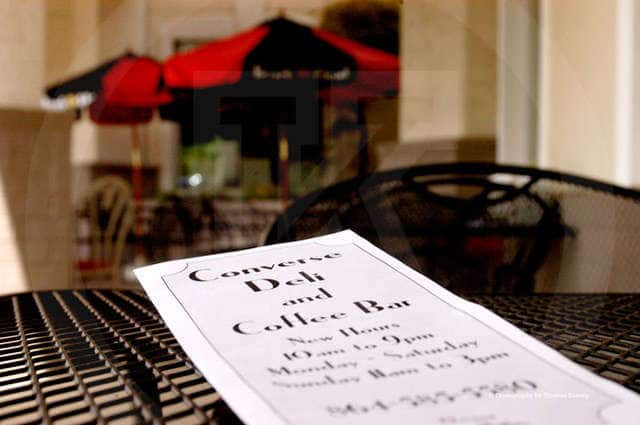 Converse
Deli
and
Coffee Bar
New Hours
10 am to 9pm
Monday - Saturday
Sunday 11am to 3pm
864-585-5580